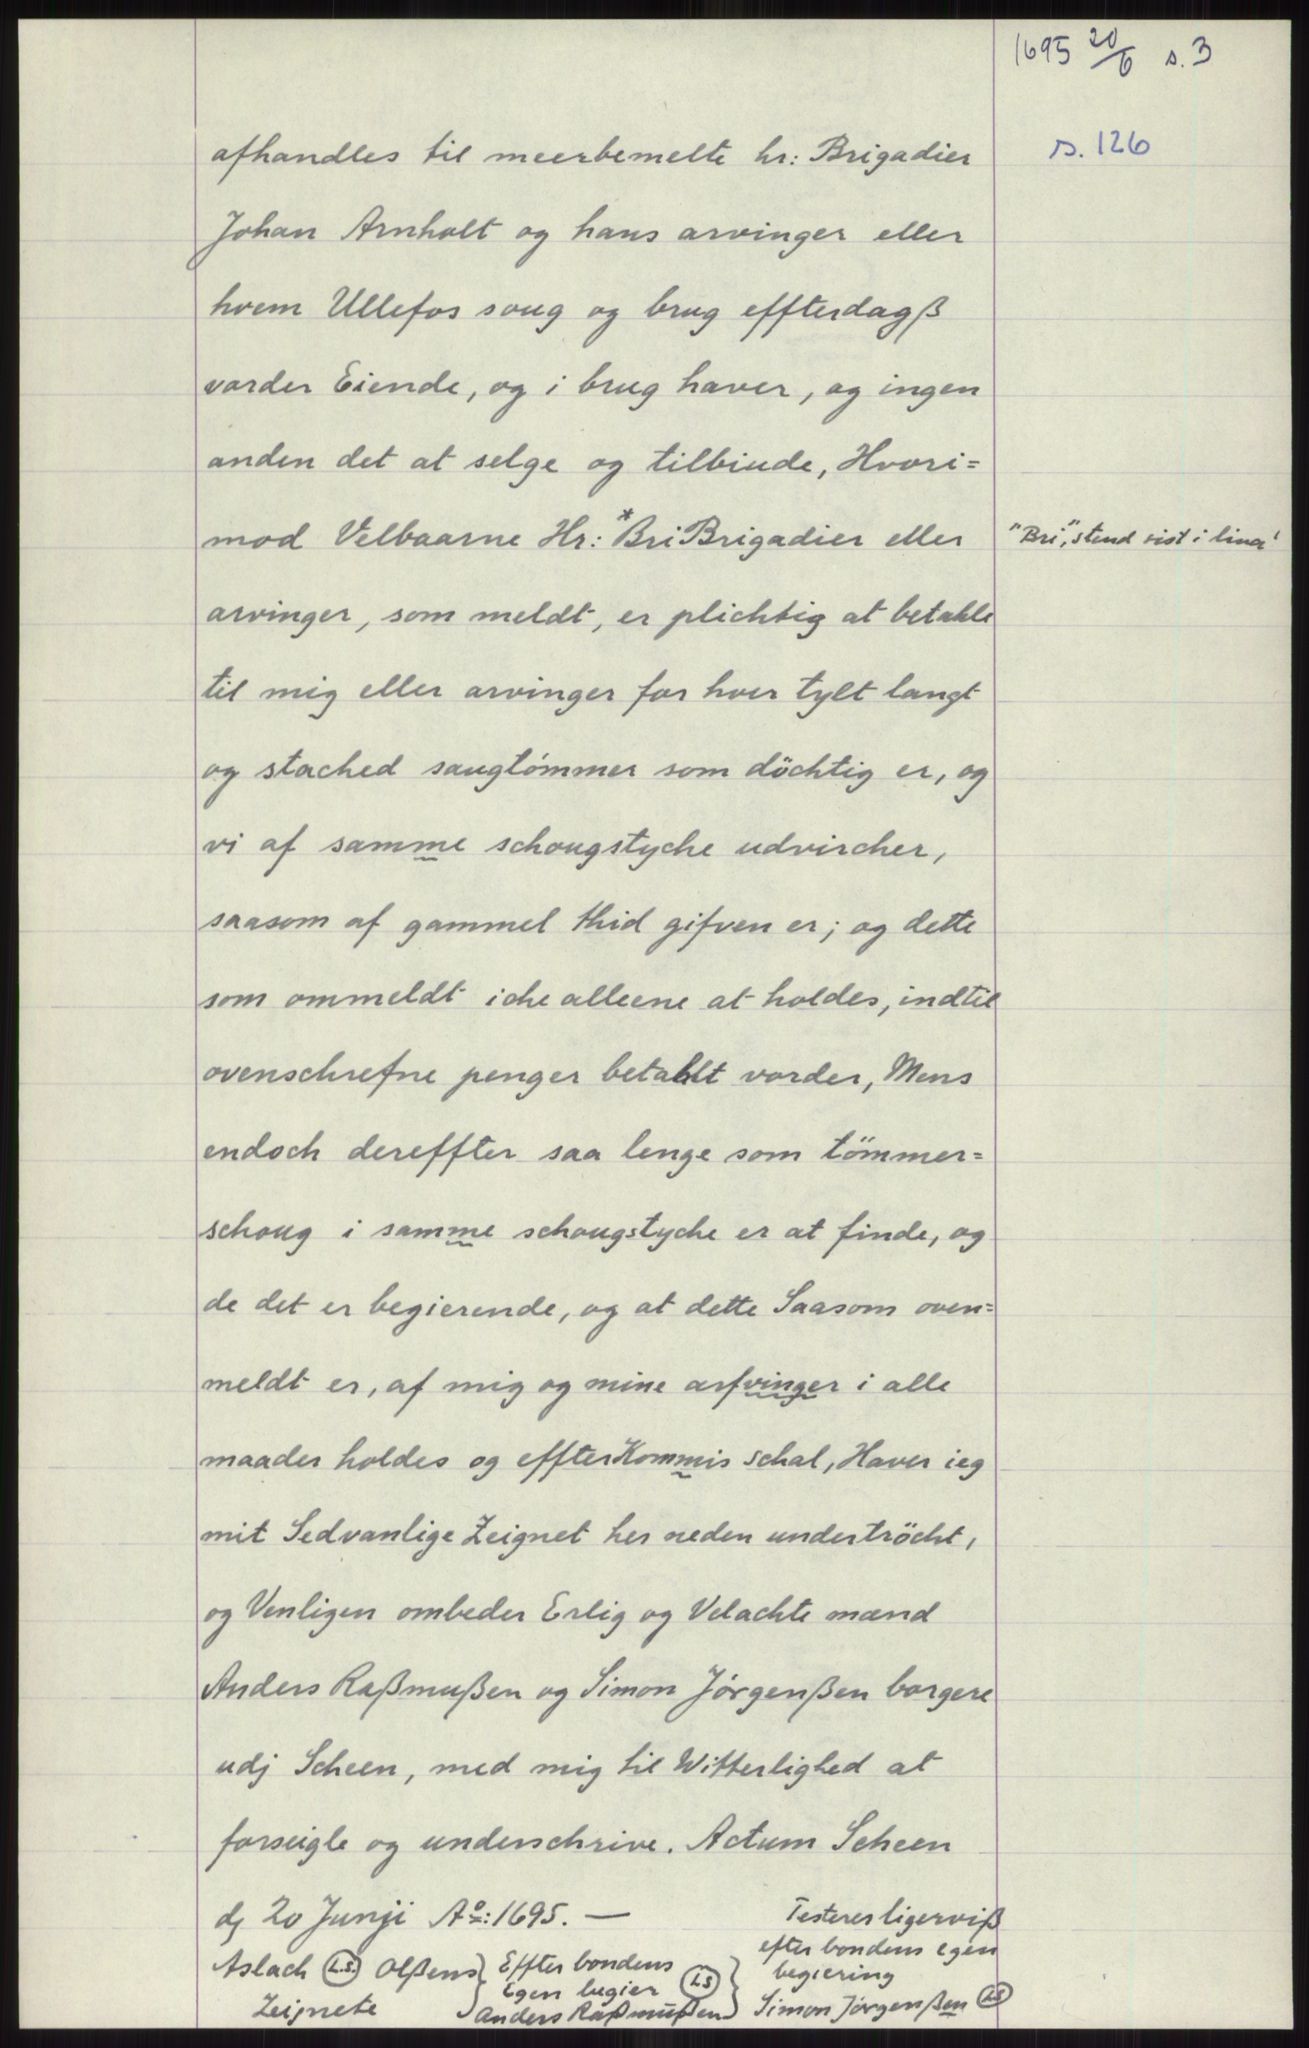 1695 20/6 s. 3
s. 126
afhandles til meerbemelte hr: Brigadier
Johan Arnholt og hans arvinger eller
hvem Ullefos soug og brug effterdagß
vorder Eiende, og i brug haver, og ingen
anden det at selge og tilbiude, Hvori=
mod Velbaarne Hr: *Bri Brigadier eller
"Bri", stend sist i lina!
arvinger, som meldt, er plichtig at betahle
til mig eller arvinger for hver tylt langt
og stached saugtömmer som döchtig er, og
vi af samme schougstyche udvircher,
saasom af gammel thid gifven er; og dette
som ommeldt iche alleene at holdes, indtil
ovenschrefne penger betahlt vorder, Mens
endoch dereffter saa lenge som tömmer=
schoug i samme schougstyche er at finde, og
de det er begierende, og at dette Saasom oven=
meldt er, af mig og mine arfvinger i alle
maader holdes og effterKommis schal, Haver ieg
mit Sedvanlige Zeignet her neden undertröcht,
og Venligen ombeder Erlig og Velachte mænd
Anders Raßmußen og Simon Jörgenßen borgere
udj Scheen, med mig til Witterlighed at
forseigle og underschrive. Actum Scheen
dj 20 Junji Ao: 1695. —
Aslach L.S. Olßens
Zeignete
Effter bondens
Egen begier L.S
Anders Raßmußen
Testeres ligerviß
efter bondens egen
begiering
Simon Jörgenßen LS